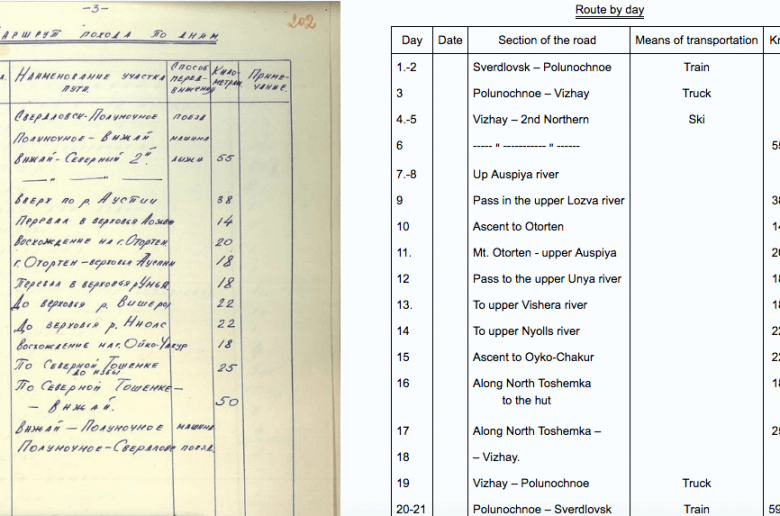 -3-
202
МАРШРУТ ПОХОДА ПО ДНЯМ
НАИМЕНОВАНИЕ УЧАСТКА ПУТИ. СПОСОБ ПЕРЕД-ВИЖЕНИЯ КИЛО-МЕТРАЖ ПРИМЕ-ЧАНИЕ.
СВЕРДЛОВСК-ПОЛУНОЧНОЕ ПОЕЗД
ПОЛУНОЧНОЕ - ВИЖАЙ МАШИНА
ВИЖАЙ-СЕВЕРНЫЙ 2й. ЛЫЖИ 55
— " — " —
ВВЕРХ ПО Р. АУСПИИ 38
ПЕРЕВАЛ В ВЕРХОВЬЯ ЛОЗЬВЫ 14
ВОСХОЖДЕНИЕ НА Г. ОТОРТЕН 20
Г. ОТОРТЕН-ВЕРХОВЬЯ АУСПИИ 18
ПЕРЕВАЛ В ВЕРХОВЬЯ Р. УНЬЯ 18
ДО ВЕРХОВЬЯ Р. ВИШЕРЫ 22
ДО ВЕРХОВЬЯ Р. НИОЛС 22
ВОСХОЖДЕНИЕ НА Г. ОЙКО-ЧАКУР 18
ПО СЕВЕРНОЙ ТОШЕМКЕ 25
ДО ИЗБЫ
ПО СЕВЕРНОЙ ТОШЕМКЕ-
- ВИЖАЙ. 50
ВИЖАЙ - ПОЛУНОЧНОЕ МАШИНА
ПОЛУНОЧНОЕ-СВЕРДЛОВСК ПОЕЗД.
Route by day
Day Date Section of the road Means of transportation
1.-2 Sverdlovsk – Polunochnoe Train
3 Polunochnoe – Vizhay Truck
4.-5 Vizhay – 2nd Northern Ski
6 ----- " ----------- " ------
7.-8 Up Auspiya river
9 Pass in the upper Lozva river
10 Ascent to Otorten
11. Mt. Otorten - upper Auspiya
12 Pass to the upper Unya river
13. To upper Vishera river
14 To upper Nyolls river
15 Ascent to Oyko-Chakur
16 Along North Toshemka
to the hut
17 Along North Toshemka –
18 – Vizhay.
19 Vizhay – Polunochnoe Truck
20-21 Polunochnoe – Sverdlovsk Train